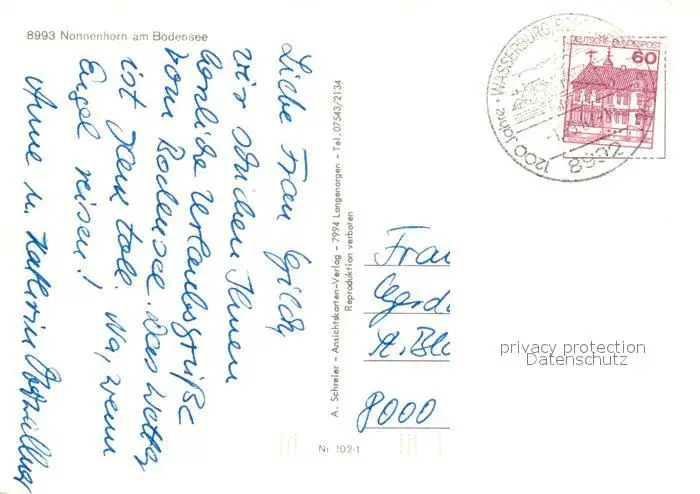 8993 Nonnenhorn am Bodensee
Liebe Frau Gilch,
wir schicken Ihnen
herzliche Urlaubsgrüße
vom Bodensee. Das Wetter
ist ganz toll. Na, wenn
Engel reisen!
Anne u. Katharina
A. Schreier - Ansichtskarten-Verlag - 7994 Langenargen - Tel. 07543/2134
Reproduktion verboten
Nr. 102-1
1200 Jahre · WASSERBURG,
8992
DEUTSCHE BUNDESPOST
60
Frau
Gerd
8000
privacy protection
Datenschutz